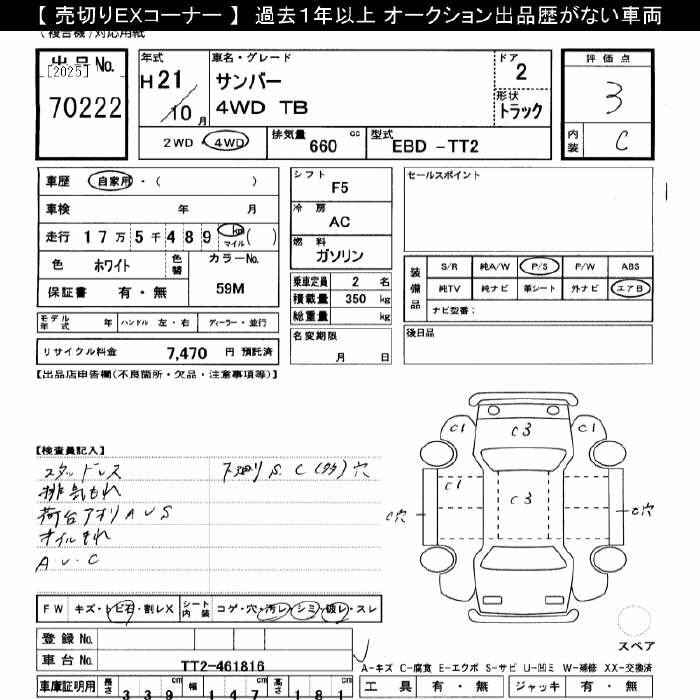 【 売切りEXコーナー 】 過去１年以上 オークション出品歴がない車両
(複合機)対応用紙
出品 No.
[2025]
70222
年式
H 21
10 月
車名・グレード
サンバー
4WD TB
ドア
2
形状
トラック
評価点
3
内装
C
2WD ・ 4WD
排気量
660 cc
型式
EBD -TT2
車歴 自家用・( )
車検 年 月
走行 17万5千489 km マイル ( )
色 ホワイト 色替
カラーNo.
59M
保証書 有・無
シフト
F5
冷房
AC
燃料
ガソリン
乗車定員 2 名
積載量 350 kg
総重量 kg
名変期限
月 日
セールスポイント
装備品
S/R 純A/W P/S P/W ABS
純TV 純ナビ 革シート 外ナビ エアB
ナビ型番:
後日品
モデル年式 年 ハンドル 左・右 ディーラー・並行
リサイクル料金 7,470 円 預託済
【出品店申告欄(不良箇所・欠品・注意事項等)】
【検査員記入】
スタッドレス
下廻りS.C(多)穴
排気もれ
荷台アオリAUS
オイルもれ
A.U.C
C1
C3
C1
C1
C3
C穴
C穴
FW キズ・トビ石・割レX シート内装 コゲ・穴・汚レ・シミ・破レ・スレ
登録 No.
車台 No. TT2-461816
スペア
A-キズ C-腐食 E-エクボ S-サビ U-凹ミ W-補修 XX-交換済
車庫証明用 長さ 339 cm 幅 147 cm 高さ 181 cm
工具 有・無 ジャッキ 有・無